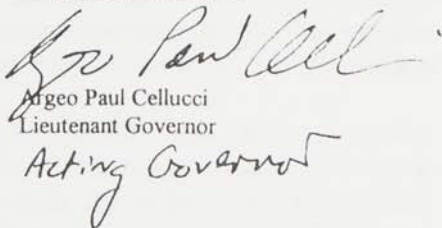 Argeo Paul Cellucci
Argeo Paul Cellucci
Lieutenant Governor
Acting Governor